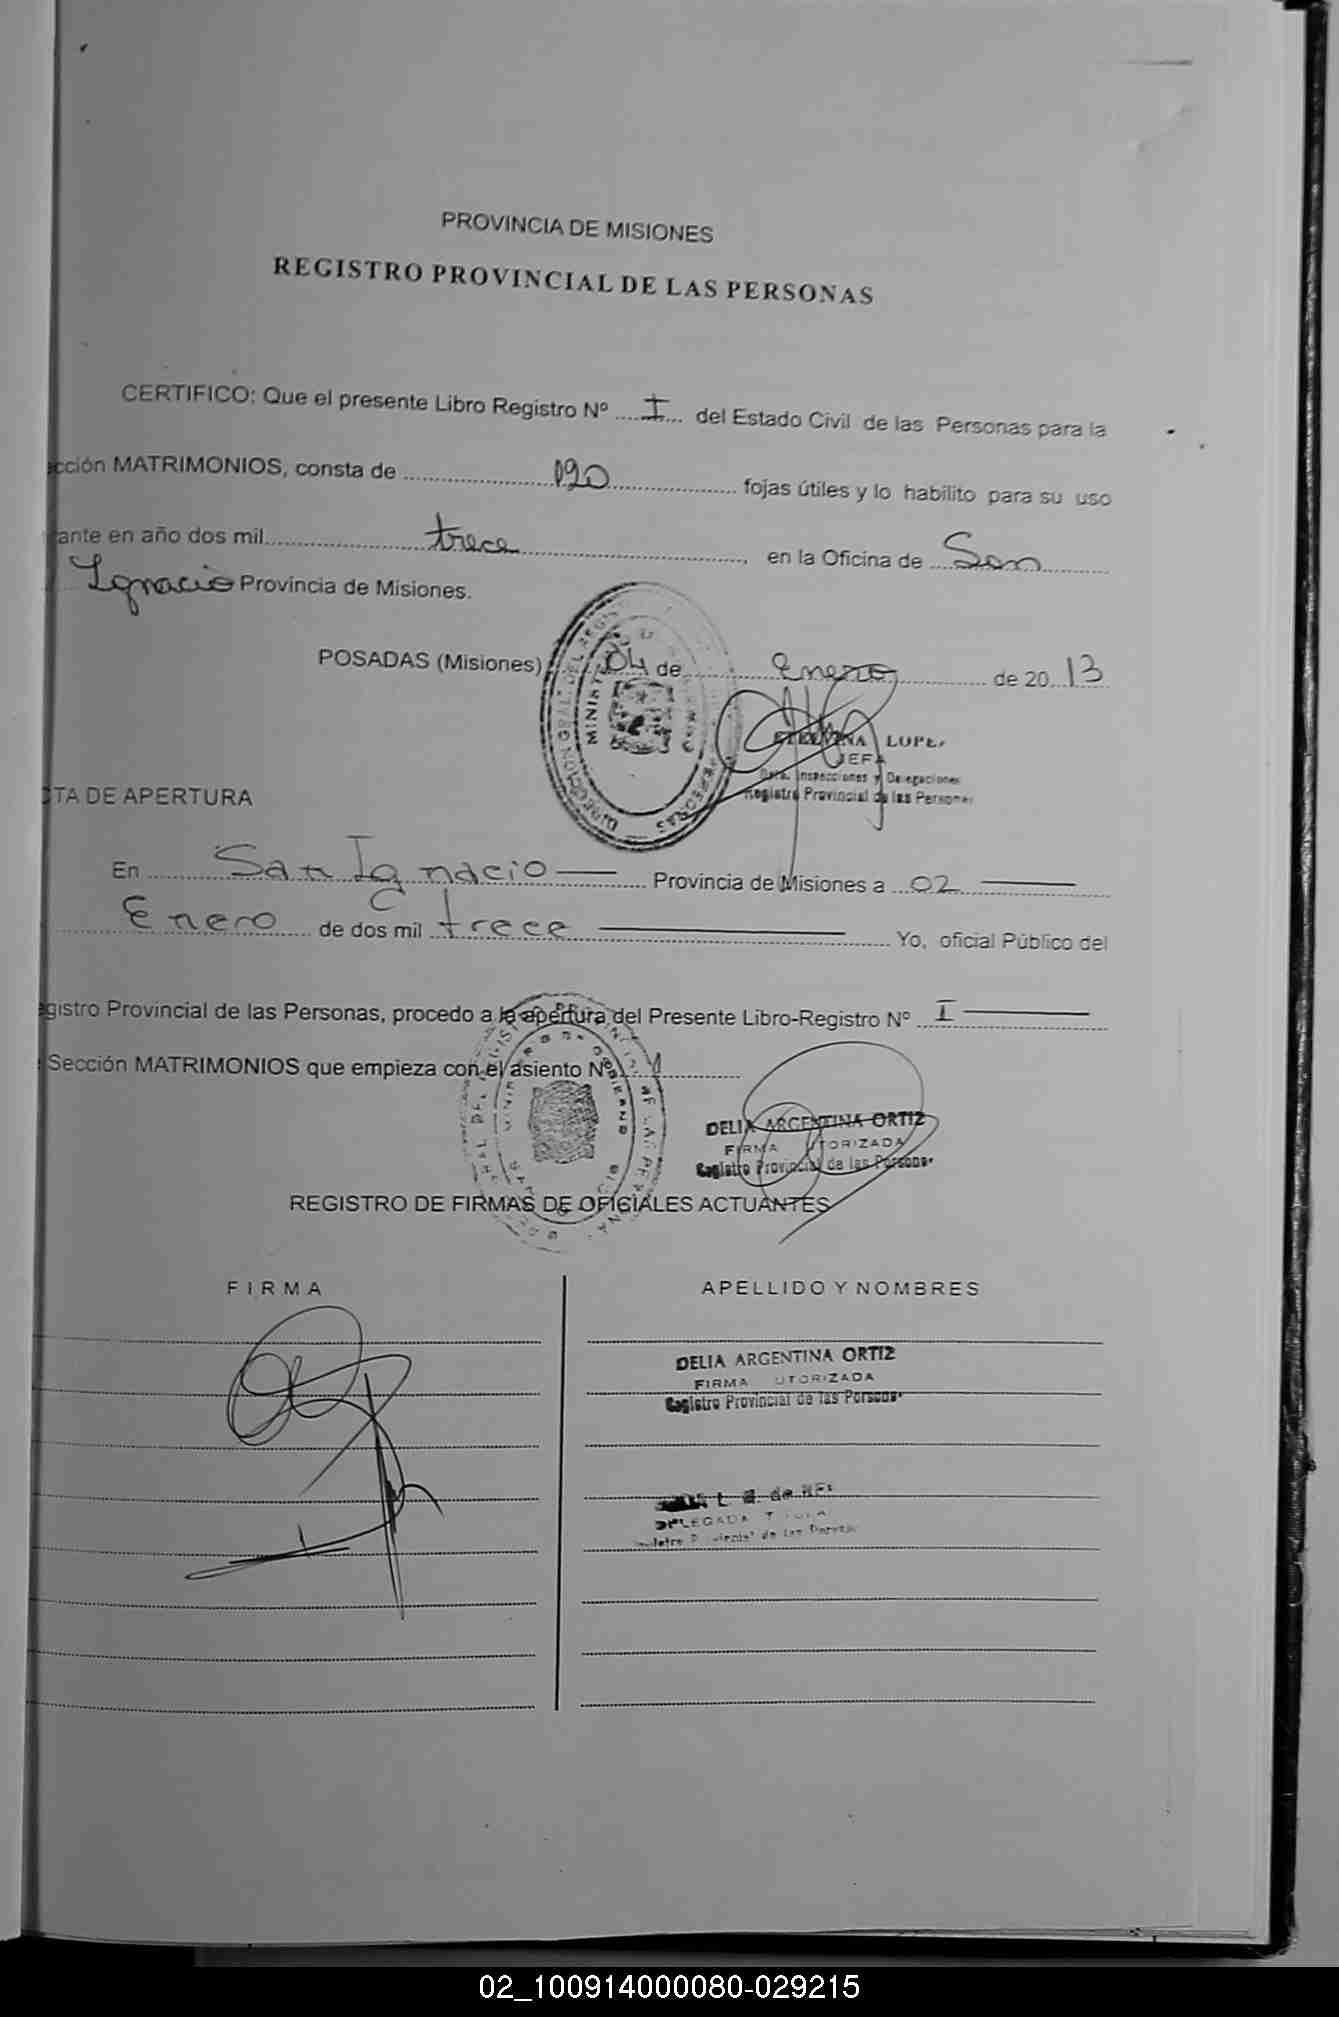 PROVINCIA DE MISIONES
REGISTRO PROVINCIAL DE LAS PERSONAS
CERTIFICO: Que el presente Libro Registro Nº I del Estado Civil de las Personas para la
cción MATRIMONIOS, consta de 120 fojas útiles y lo habilito para su uso
rante en año dos mil trece, en la Oficina de San
Ignacio Provincia de Misiones.
POSADAS (Misiones) 04 de Enero de 2013
LOPEZ
JEFA
Dpto. Inspecciones y Delegaciones
Registro Provincial de las Personas
TA DE APERTURA
En San Ignacio Provincia de Misiones a 02
Enero de dos mil trece Yo, oficial Público del
gistro Provincial de las Personas, procedo a la apertura del Presente Libro-Registro Nº I
Sección MATRIMONIOS que empieza con el asiento Nº 1
DELIA ARGENTINA ORTIZ
FIRMA UTORIZADA
Registro Provincial de las Personas
REGISTRO DE FIRMAS DE OFICIALES ACTUANTES
FIRMA APELLIDO Y NOMBRES
DELIA ARGENTINA ORTIZ
FIRMA UTORIZADA
Registro Provincial de las Personas
DELEGADA
02_100914000080-029215